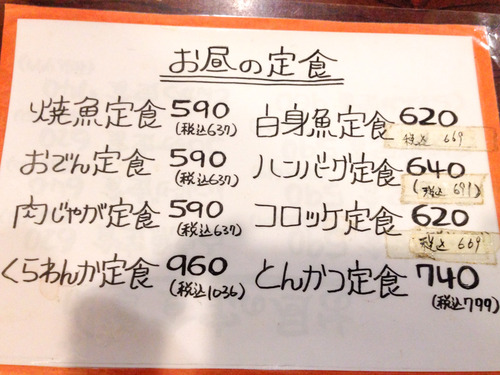 お昼の定食
焼魚定食 590
(税込637)
おでん定食 590
(税込637)
肉じゃが定食 590
(税込637)
くらわんか定食 960
(税込1036)
白身魚定食 620
税込 669
ハンバーグ定食 640
(税込 691)
コロッケ定食 620
税込 669
とんかつ定食 740
(税込799)